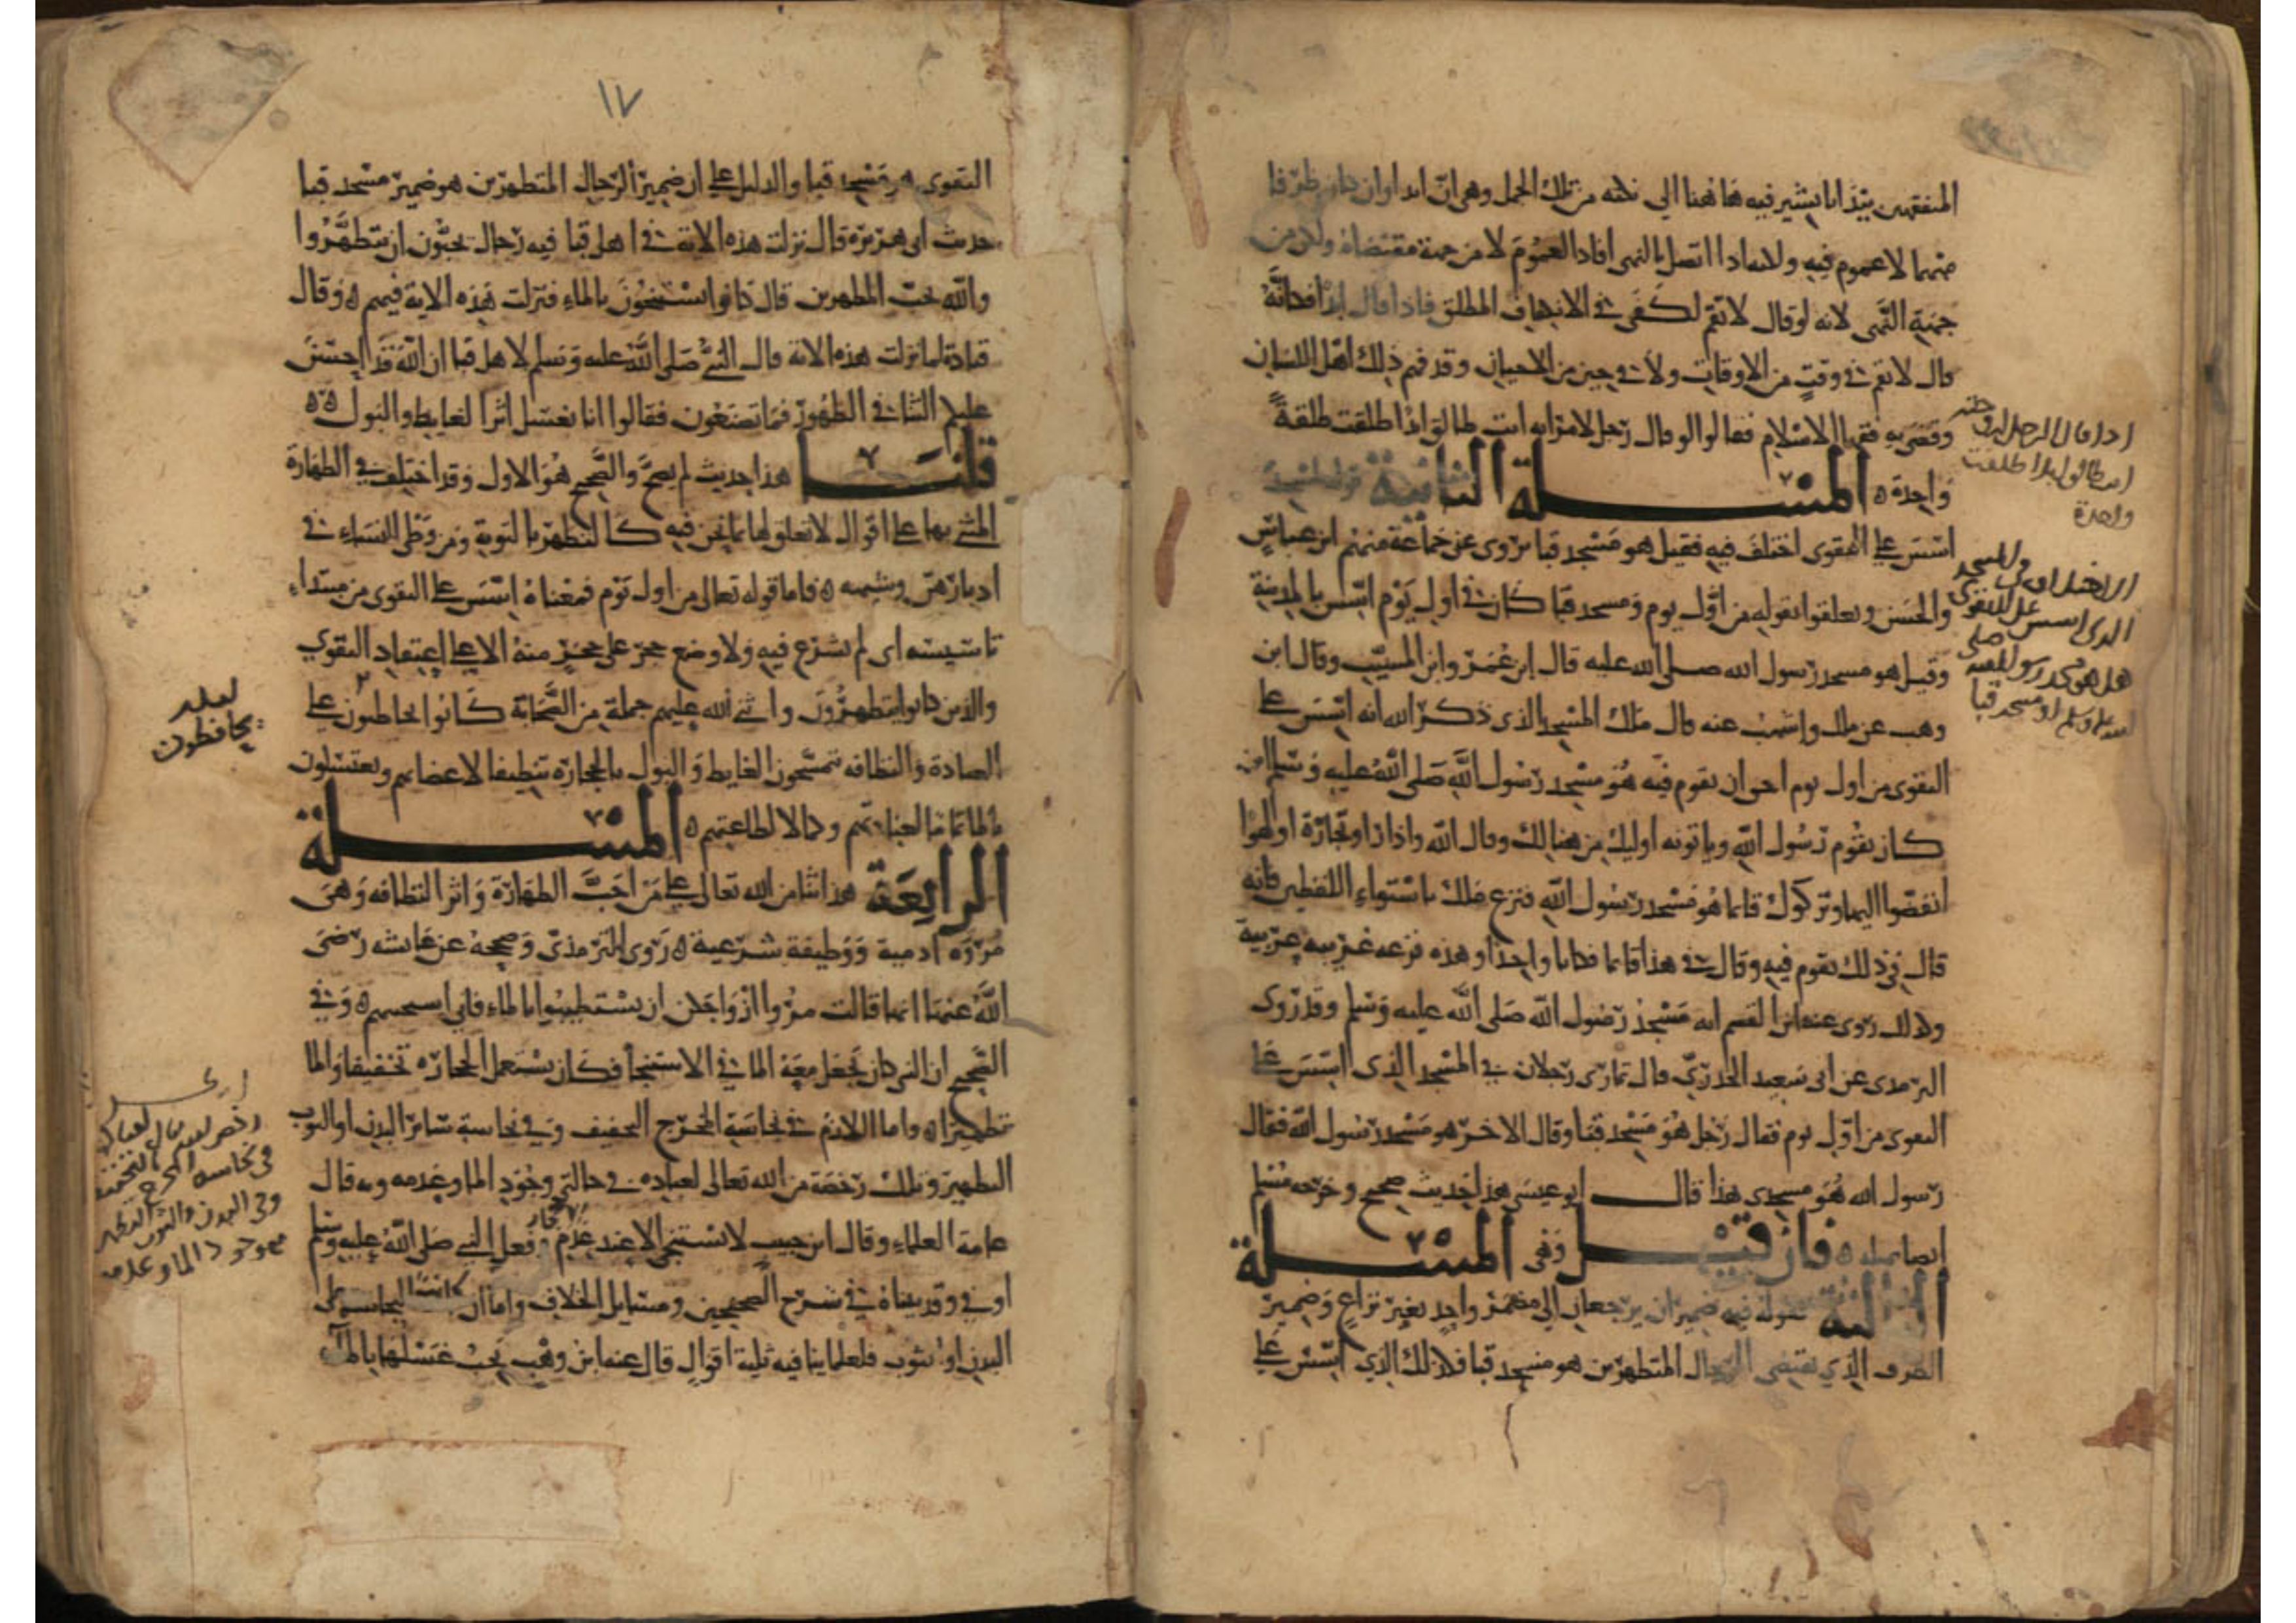 المتفقهين بيْدَ انا نشير فيه هاهنا الى نكته من تلك الجمل وهى ان ابدا وان كان ظرفا
مبهما لا عموم فيه ولكنه اذا اتصل بالنهى افاد العموم لا من جهة مقتضاه ولكن من
جهة النهى لانه لو قال لا تقم لكفى في الانكفاف المطلق فاذا قال ابدا فكانه
قال لا تقم في وقت من الاوقات ولا في حين من الاحيان وقد فهم ذلك اهل اللسان
وقضى به فقها الاسلام فقالوا لو قال رجل لامراته انت طالق ابدا طلقت طلقة
واحدة ه المسلة الثانية قوله لمسجد
اسس على التقوى اختلف فيه فقيل هو مسجد قبا يروى عن جماعة منهم ابن عباس
والحسن وتعلقوا بقوله من اول يوم ومسجد قبا كان في اول يوم اسس بالمدينة
وقيل هو مسجد رسول الله صلى الله عليه قال ابن عمر وابن المسيب وقال ابن
وهب عن ملك واشهب عنه قال ملك المسجد الذي ذكر الله انه اسس على
التقوى من اول يوم احق ان تقوم فيه هو مسجد رسول الله صلى الله عليه وسلم اذ
كان يقوم رسول الله وياتونه اوليك من هنالك وقال الله واذا راوا تجارة او لهوا
انفضوا اليها وتركوك قايما هو مسجد رسول الله فنزع ملك باستواء اللفظين فانه
قال في ذلك تقوم فيه وقال في هذا قايما فكانا واحدا وهذه نزعه غريبه عربية
وكذلك روى عنه ابن القسم انه مسجد رسول الله صلى الله عليه وسلم وقد روى
الترمذى عن ابى سعيد الخدري قال تمارى رجلان في المسجد الذى اسس على
التقوى من اول يوم فقال رجل هو مسجد قبا وقال الاخر هو مسجد رسول الله فقال
رسول الله هو مسجدى هذا قال ابو عيسى هذا حديث صحيح وخرجه مسلم
ايضا ه فان قيل وهى المسلة
الثالثة قوله فيه ضميران يرجعان الى مضمر واحد بغير نزاع وضمير
الظرف الذي يقتضى الرجال المتطهرين هو مسجد قبا فذلك الذي اسس على
اذا قال الرجل لزوجته
انت طالق ابدا طلقت
واحدة
الاختلاف في المسجد
الذي اسس على التقوى
هل هو مسجد رسول الله صلى
الله عليه وسلم او مسجد قبا
١٧
التقوى هو مسجد قبا والدليل على ان ضمير الرجال المتطهرين هو ضمير مسجد قبا
حديث ابى هريرة قال نزلت هذه الاية في اهل قبا فيه رجال يحبون ان يتطهروا
والله يحب المطهرين قال كانوا يستنجون بالماء فنزلت هذه الاية فيهم ه وقال
قتادة لما نزلت هذه الاية قال النبي صلى الله عليه وسلم لاهل قبا ان الله قد احسن
عليكم الثنا في الطهور فما تصنعون فقالوا انا نغسل اثر الغايط والبول ه ه
قلنا هذا حديث لم يصح والصحيح هو الاول وقد اختلف في الطهارة
المثنى بها على اقوال لا تعلق لها بما نحن فيه كالتطهر بالتوبة ومن وطى النساء في
ادبارهن وشبهه ه فاما قوله تعالى من اول يوم فمعناه اسس على التقوى من مبتداء
تاسيسه اى لم يشرع فيه ولا وضع حجر على حجر منه الا على اعتقاد التقوى
والذين كانوا يتطهرون واثنى الله عليهم جملة من الصحابة كانوا يحاطون على
العبادة والنظافه يتمسحون الغايط والبول بالحجارة تنظيفا لاعضايهم ويغتسلون
بالما تماما لعبادتهم وكمالا لطاعتهم ه المسلة
الرابعة هذا ثنا من الله تعالى على من احب الطهارة واثر النظافه وهى
مروة ادمية ووظيفة شرعية ه روى الترمذى وصححه عن عايشه رضى
الله عنها انها قالت مروا ازواجكن ان يستطيبوا بالماء فانى استحييهم ه وفي
الصحيح ان النبي كان يحمل معه الما في الاستنجا فكان يستعمل الحجاره تخفيفا والما
تطهيرا ه واما اللازم في نجاسة المخرج التخفيف وفي نجاسة سائر البدن او الثوب
التطهير وتلك رخصة من الله تعالى لعباده في حالتي وجود الما وعدمه وبه قال
عامة العلماء وقال ابن حبيب لا يستنجى الا عند عدم وفعل النبي صلى الله عليه وسلم
اوفى وقد بيناه في شرح الصحيحين ومسايل الخلاف واما ان كانت النجاسة على
البدن او الثوب فلعلماينا فيه ثلثة اقوال قال عنه ابن وهب يجب غسلها بالماء
لعله
يحافظون
رخص الله تعالى لعباده
في نجاسة المخرج بالتخفيف
وفي البدن والثوب التطهير
موجود الما وعدمه